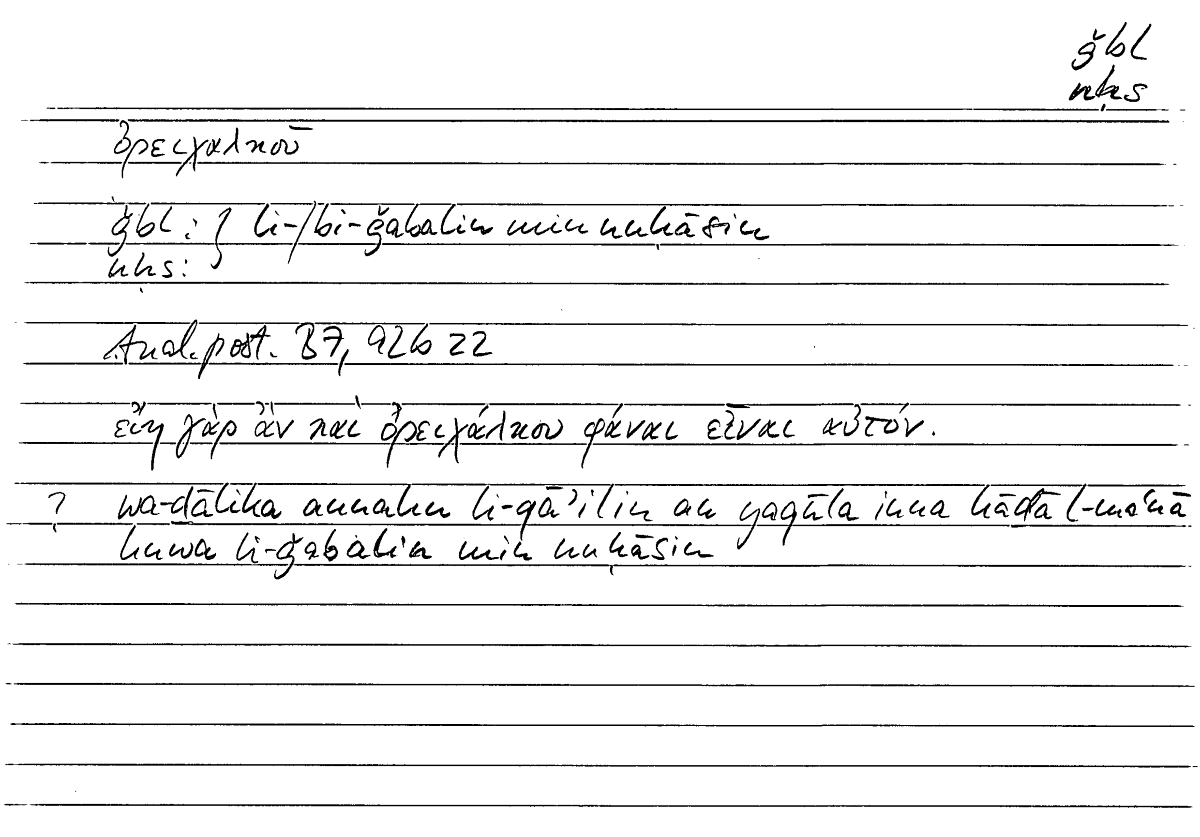 ǧbl
nḥs
ὀρειχαλκοῦ
ǧbl : } li-/bi-ǧabalin min nuḥāsin
nḥs :
Anal. post. B7, 92b 22
εἴη γὰρ ἂν καὶ ὀρειχάλκου φάναι εἶναι αὐτόν.
? wa-ḏālika annahu li-qāʾilin an yaqūla inna hāḏā l-maʿnā
huwa li-ǧabalin min nuḥāsin